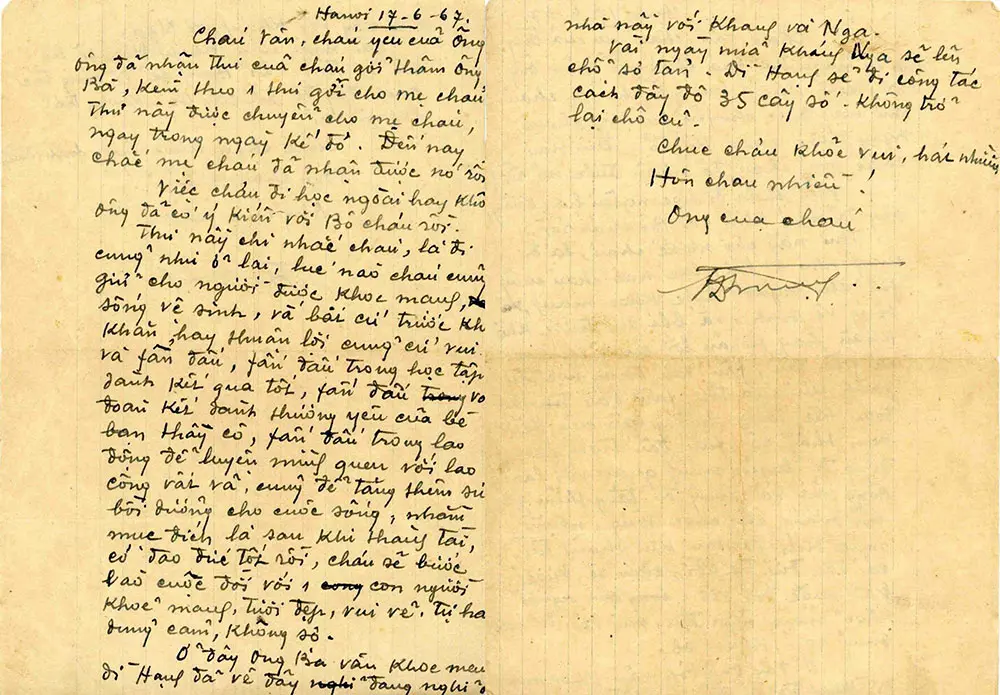 Hanoi 17-6-67.
Cháu Vân, cháu yêu cuả Ông
ông đã nhận thư cuả cháu gởi thăm Ông
Bà, kèm theo 1 thư gởi cho mẹ cháu.
Thư nầy được chuyển cho mẹ cháu,
ngay trong ngày kế đó. Đến nay
chắc mẹ cháu đã nhận được nó rồi
Việc cháu đi học ngoài hay khô
ông đã có ý kiến với Bố cháu rồi.
Thư nầy chỉ nhắc cháu, là đi
cung như ở lại, luc nào cháu cung
giư cho người được khoe mạng,
sống vệ sinh, và bất cứ trước kh
khăn, hay thuân lợi cung cứ vui
và fấn đấu, fấn đấu trong học tập
danh kết qua tốt, fấn đấu trong vo
đoàn kết danh thương yêu của bè
bạn thầy cô, fấn đấu trong lao
động để luyện mình quen với lao
công vât vả, cung để tăng thêm sứ
bồi dương cho cuộc sống, nhằm
muc đích là sau khi thàng tài,
có đao đưc tốt rồi, cháu sẽ bước
vaò cuộc đời với 1 cong con người
khoẻ mạng, tươi đẹp, vui vẻ, tự ha
dung cảm, không sợ.
Ở đây Ông Bà vân khoẻ mạn
dì Hạng đã về đây nghi đang nghi ở
nhà nầy với Khang và Nga.
Vài ngày nưã Khang Nga sẽ lên
chổ sơ tán. Dì Hạng sẽ đi công tác
cách đây độ 35 cây số. Không trở
lại chỗ cũ.
Chuc cháu khỏe vui, hát nhiều
Hôn chau nhiều!
Ông cuả cháu